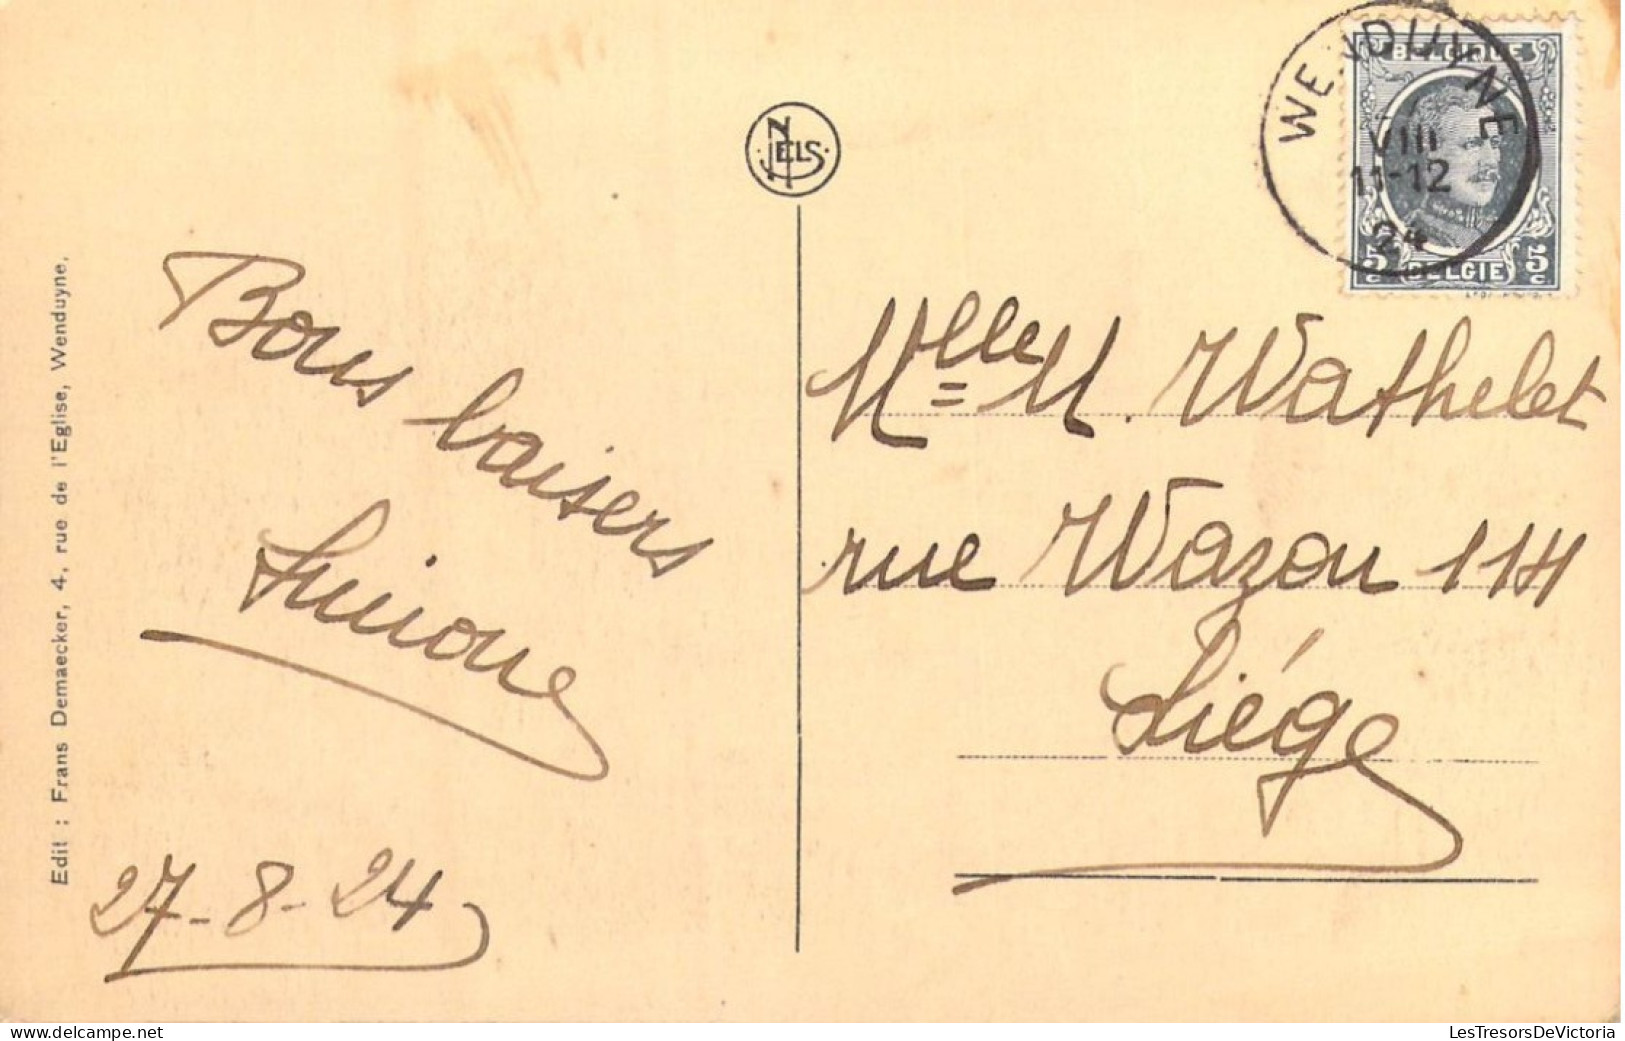 Edit : Frans Demaecker, 4, rue de l'Eglise, Wenduyne.
NELS
WENDUYNE
VIII
11-12
24
BELGIQUE
5c 5c
BELGIE
Bons baisers
Simone
27-8-24
Mlle M. Wathelet
rue Wazon 114
Liége
www.delcampe.net
LesTresorsDeVictoria